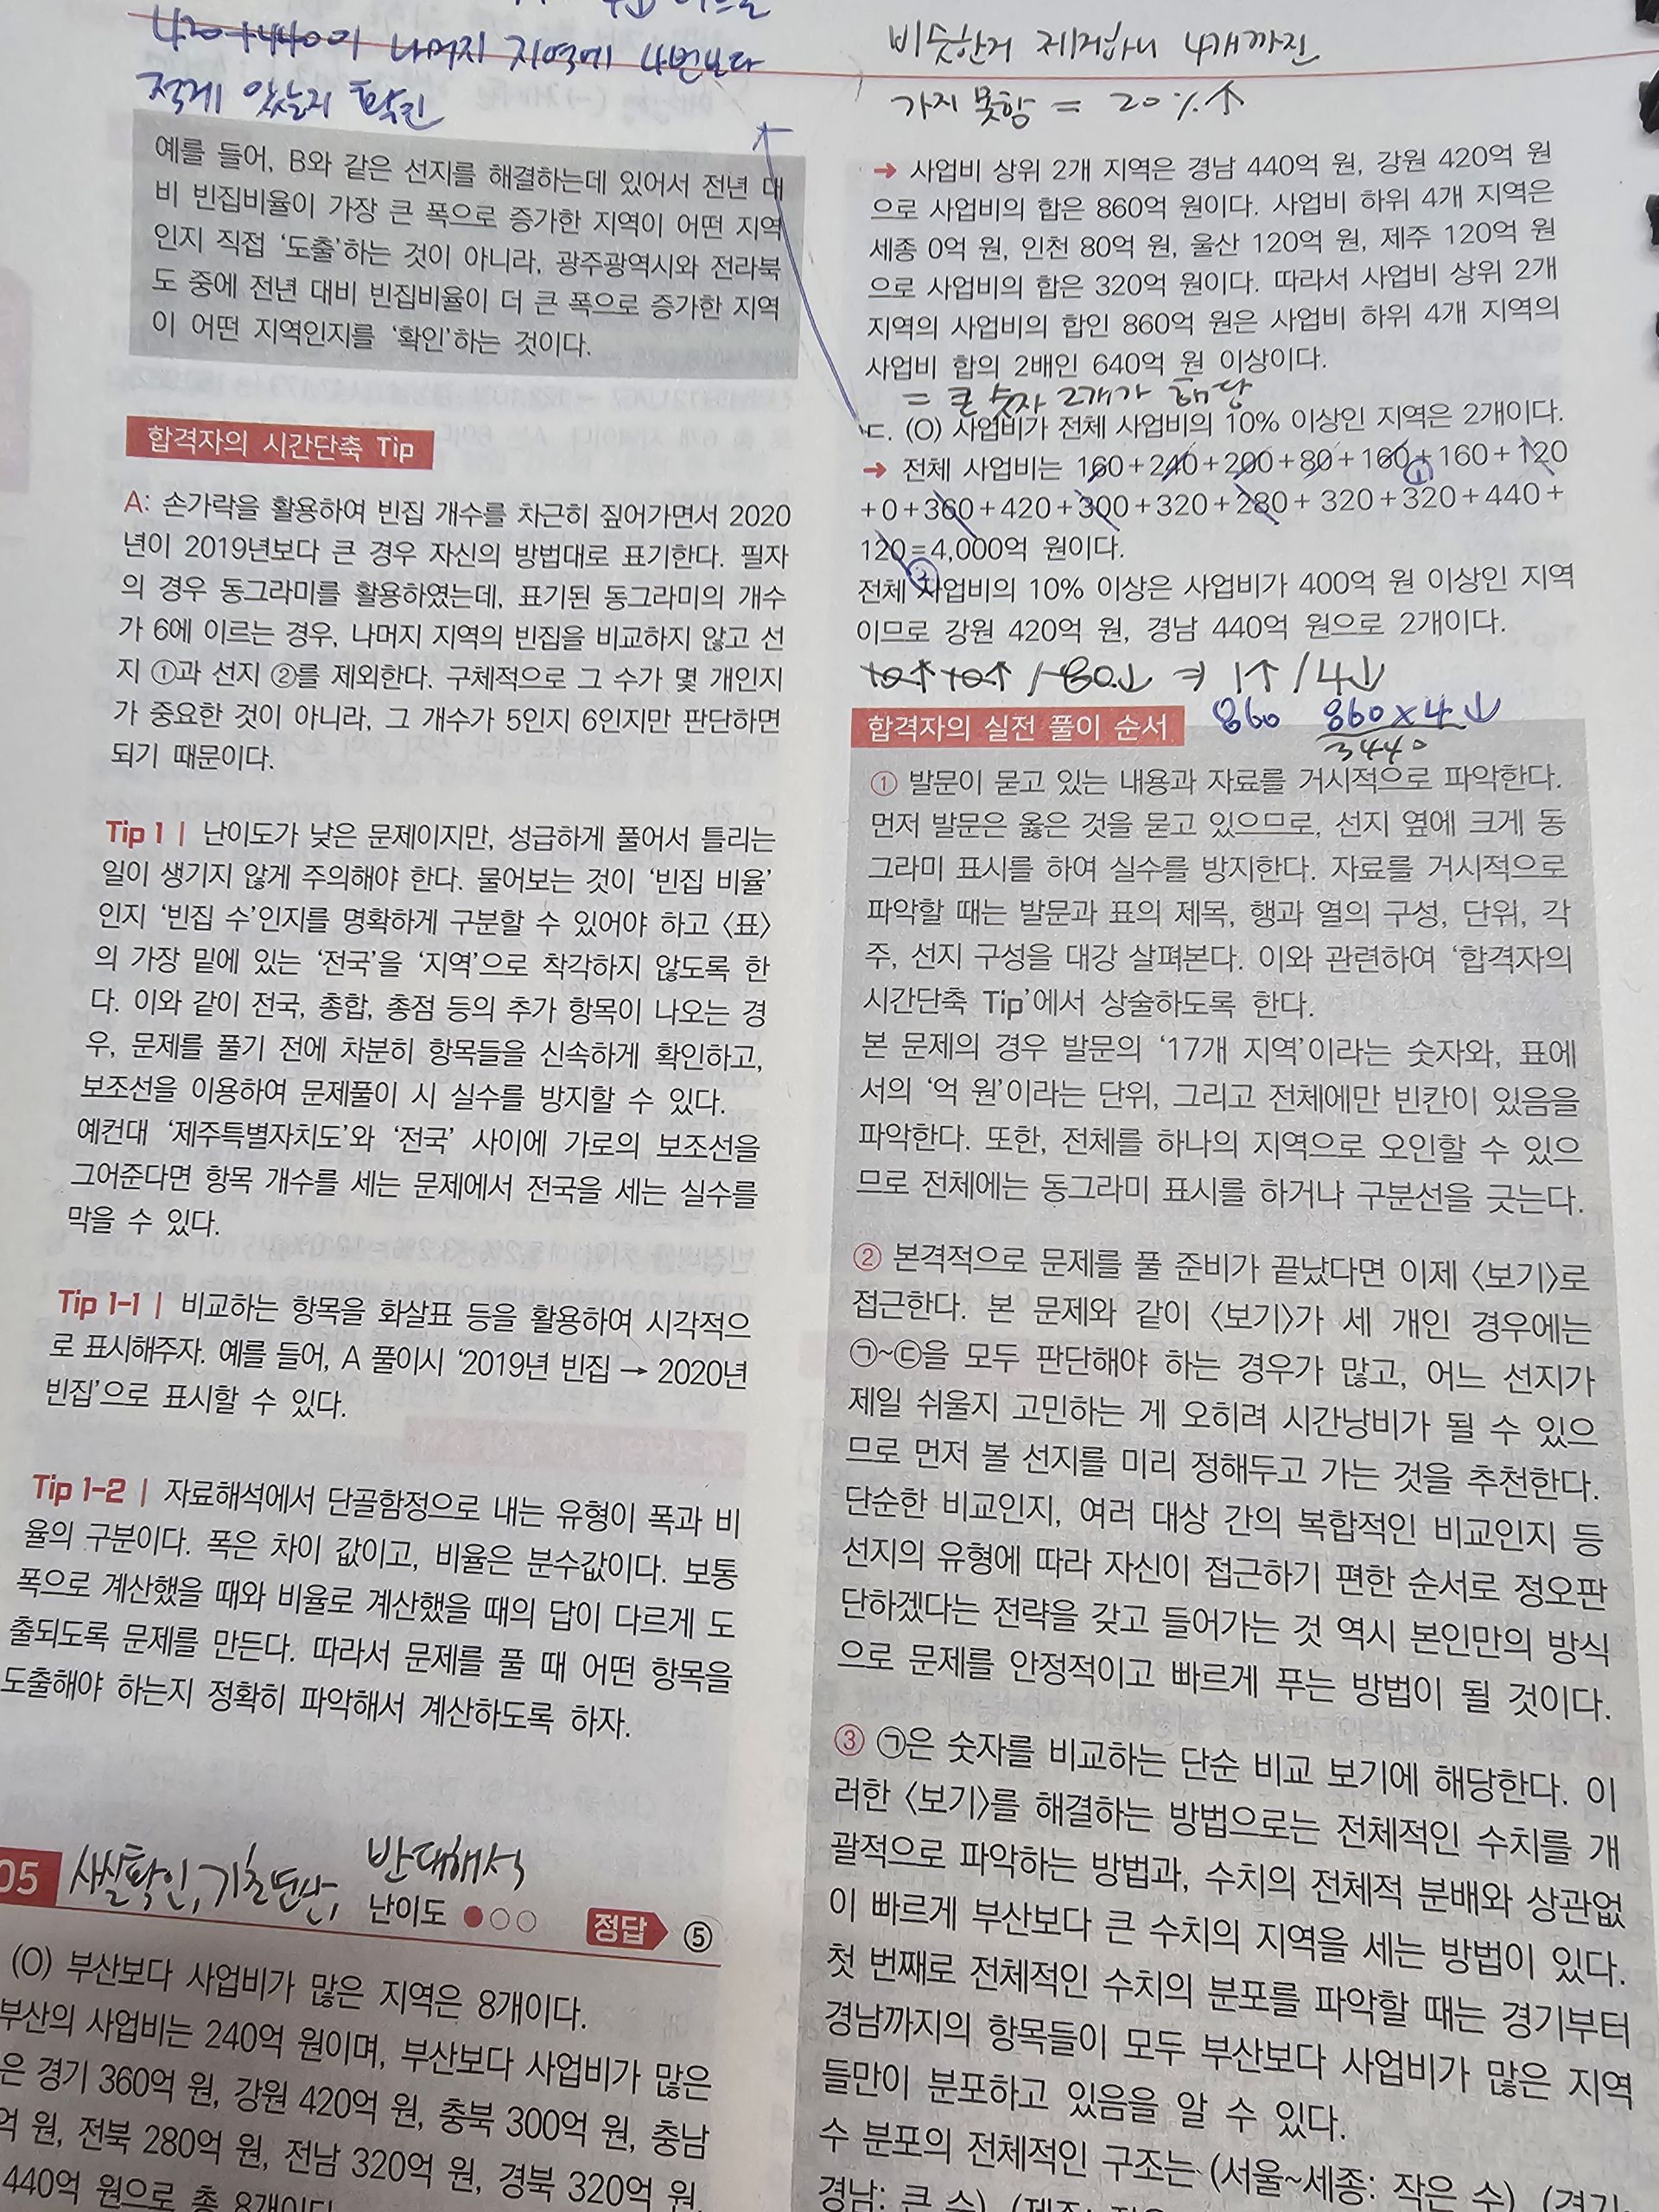 420+440이 나머지 지역에 4번보다
적게 있는지 확인
예를 들어, B와 같은 선지를 해결하는데 있어서 전년 대
비 빈집비율이 가장 큰 폭으로 증가한 지역이 어떤 지역
인지 직접 '도출'하는 것이 아니라, 광주광역시와 전라북
도 중에 전년 대비 빈집비율이 더 큰 폭으로 증가한 지역
이 어떤 지역인지를 '확인'하는 것이다.
합격자의 시간단축 Tip
A: 손가락을 활용하여 빈집 개수를 차근히 짚어가면서 2020
년이 2019년보다 큰 경우 자신의 방법대로 표기한다. 필자
의 경우 동그라미를 활용하였는데, 표기된 동그라미의 개수
가 6에 이르는 경우, 나머지 지역의 빈집을 비교하지 않고 선
지 ①과 선지 ②를 제외한다. 구체적으로 그 수가 몇 개인지
가 중요한 것이 아니라, 그 개수가 5인지 6인지만 판단하면
되기 때문이다.
Tip 1 | 난이도가 낮은 문제이지만, 성급하게 풀어서 틀리는
일이 생기지 않게 주의해야 한다. 물어보는 것이 '빈집 비율'
인지 '빈집 수'인지를 명확하게 구분할 수 있어야 하고 〈표〉
의 가장 밑에 있는 '전국'을 '지역'으로 착각하지 않도록 한
다. 이와 같이 전국, 총합, 총점 등의 추가 항목이 나오는 경
우, 문제를 풀기 전에 차분히 항목들을 신속하게 확인하고,
보조선을 이용하여 문제풀이 시 실수를 방지할 수 있다.
예컨대 '제주특별자치도'와 '전국' 사이에 가로의 보조선을
그어준다면 항목 개수를 세는 문제에서 전국을 세는 실수를
막을 수 있다.
Tip 1-1 | 비교하는 항목을 화살표 등을 활용하여 시각적으
로 표시해주자. 예를 들어, A 풀이시 '2019년 빈집 → 2020년
빈집'으로 표시할 수 있다.
Tip 1-2 | 자료해석에서 단골함정으로 내는 유형이 폭과 비
율의 구분이다. 폭은 차이 값이고, 비율은 분수값이다. 보통
폭으로 계산했을 때와 비율로 계산했을 때의 답이 다르게 도
출되도록 문제를 만든다. 따라서 문제를 풀 때 어떤 항목을
도출해야 하는지 정확히 파악해서 계산하도록 하자.
05 반대해석
난이도 정답 ⑤
(O) 부산보다 사업비가 많은 지역은 8개이다.
부산의 사업비는 240억 원이며, 부산보다 사업비가 많은
은 경기 360억 원, 강원 420억 원, 충북 300억 원, 충남
억 원, 전북 280억 원, 전남 320억 원, 경북 320억 원,
440억 원으로 총 8개이다
비슷한거 제거하니 4개까진
가지 못함 = 20%↑
→ 사업비 상위 2개 지역은 경남 440억 원, 강원 420억 원
으로 사업비의 합은 860억 원이다. 사업비 하위 4개 지역은
세종 0억 원, 인천 80억 원, 울산 120억 원, 제주 120억 원
으로 사업비의 합은 320억 원이다. 따라서 사업비 상위 2개
지역의 사업비의 합인 860억 원은 사업비 하위 4개 지역의
사업비 합의 2배인 640억 원 이상이다.
= 큰 숫자 2개가 해당
ㄷ. (O) 사업비가 전체 사업비의 10% 이상인 지역은 2개이다.
→ 전체 사업비는 160+240+200+80+160+160+120
+0+360+420+300+320+280+320+320+440+
120=4,000억 원이다.
전체 사업비의 10% 이상은 사업비가 400억 원 이상인 지역
이므로 강원 420억 원, 경남 440억 원으로 2개이다.
10↑10↑/-80↓ ⇒ 1↑/4↓
860 860×4↓
3440
합격자의 실전 풀이 순서
① 발문이 묻고 있는 내용과 자료를 거시적으로 파악한다.
먼저 발문은 옳은 것을 묻고 있으므로, 선지 옆에 크게 동
그라미 표시를 하여 실수를 방지한다. 자료를 거시적으로
파악할 때는 발문과 표의 제목, 행과 열의 구성, 단위, 각
주, 선지 구성을 대강 살펴본다. 이와 관련하여 '합격자의
시간단축 Tip'에서 상술하도록 한다.
본 문제의 경우 발문의 '17개 지역'이라는 숫자와, 표에
서의 '억 원'이라는 단위, 그리고 전체에만 빈칸이 있음을
파악한다. 또한, 전체를 하나의 지역으로 오인할 수 있으
므로 전체에는 동그라미 표시를 하거나 구분선을 긋는다.
② 본격적으로 문제를 풀 준비가 끝났다면 이제 〈보기〉로
접근한다. 본 문제와 같이 〈보기〉가 세 개인 경우에는
㉠~㉢을 모두 판단해야 하는 경우가 많고, 어느 선지가
제일 쉬울지 고민하는 게 오히려 시간낭비가 될 수 있으
므로 먼저 볼 선지를 미리 정해두고 가는 것을 추천한다.
단순한 비교인지, 여러 대상 간의 복합적인 비교인지 등
선지의 유형에 따라 자신이 접근하기 편한 순서로 정오판
단하겠다는 전략을 갖고 들어가는 것 역시 본인만의 방식
으로 문제를 안정적이고 빠르게 푸는 방법이 될 것이다.
③ ㉠은 숫자를 비교하는 단순 비교 보기에 해당한다. 이
러한 〈보기〉를 해결하는 방법으로는 전체적인 수치를 개
괄적으로 파악하는 방법과, 수치의 전체적 분배와 상관없
이 빠르게 부산보다 큰 수치의 지역을 세는 방법이 있다.
첫 번째로 전체적인 수치의 분포를 파악할 때는 경기부터
경남까지의 항목들이 모두 부산보다 사업비가 많은 지역
들만이 분포하고 있음을 알 수 있다.
수 분포의 전체적인 구조는 (서울~세종: 작은 수), (경기
경남: 큰 수)